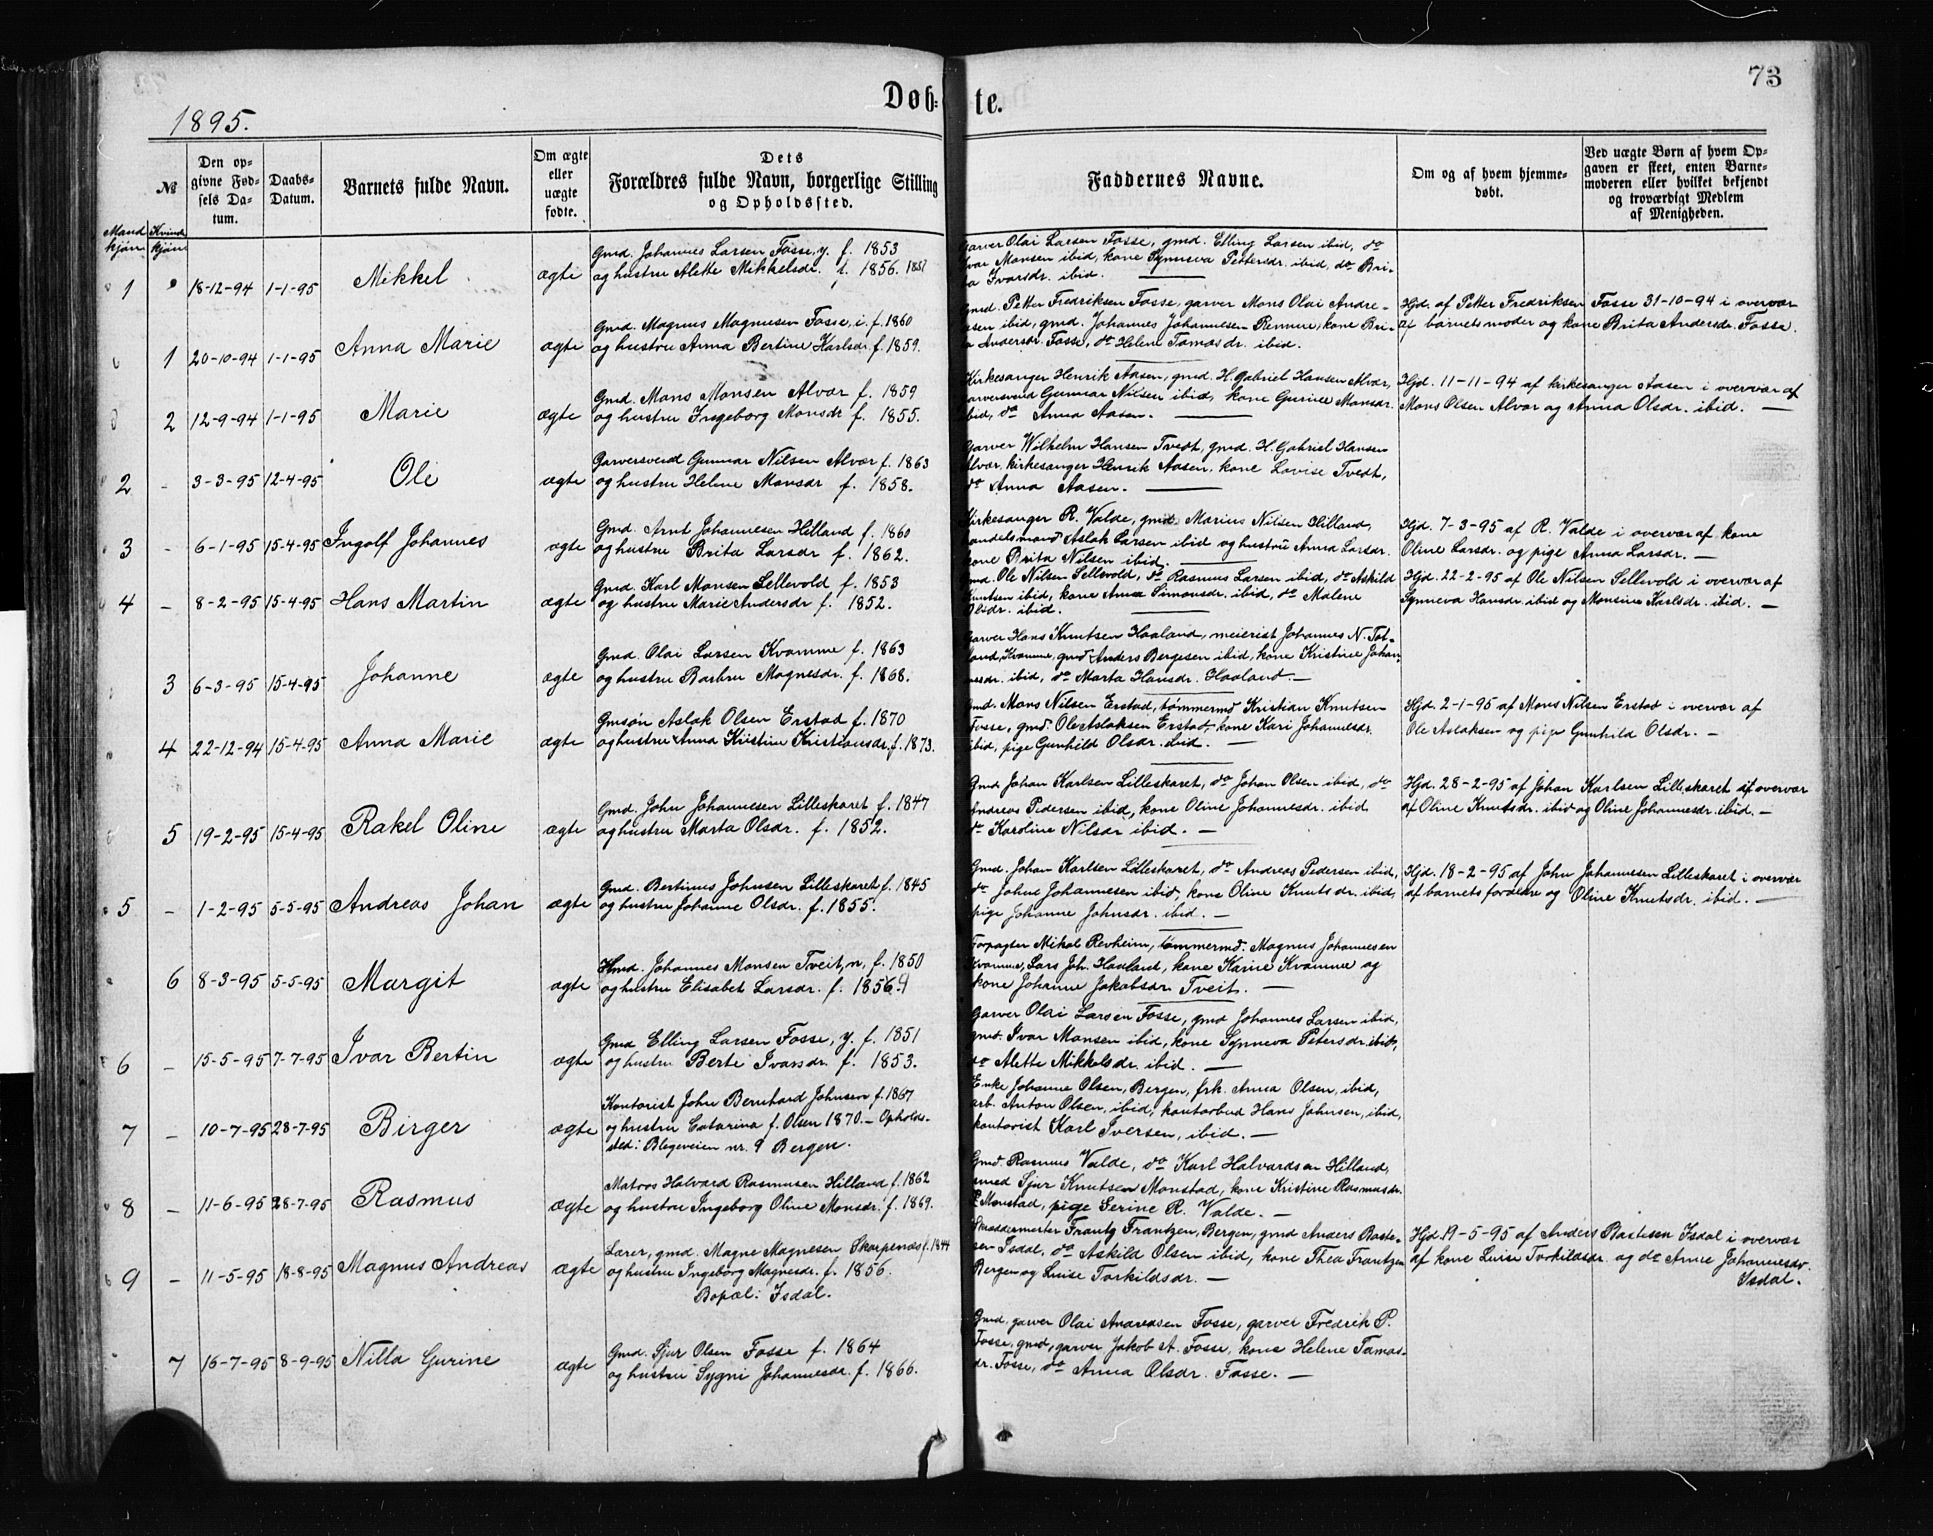 73
Døb: te.
1895.
№
Den op-
givne Fød-
sels Da-
tum.
Daabs-
Datum.
Barnets fulde Navn.
Om ægte
eller
uægte
fødte.
Dets
Forældres fulde Navn, borgerlige Stilling
og Opholdssted.
Faddernes Navne.
Om og af hvem hjemme-
døbt.
Ved uægte Børn af hvem Op-
gaven er skeet, enten Barne-
moderen eller hvilket bekjendt
og troværdigt Medlem
af Menigheden.
Mand kjøn
Kvind kjøn
1 18-12-94 1-1-95 Mikkel ægte
Gmd. Johannes Larsen Fosse, y. f. 1853
og hustru Alette Mikkelsdr. f. 1856.
Garver Olai Larsen Fosse, gmd. Elling Larsen ibid, do
Ivar Monsen ibid, kone Synneva Pettersdr. ibid, do Bri-
ta Ivarsdr. ibid.
1 20-10-94 1-1-95 Anna Marie ægte
Gmd. Magnus Magnusen Fosse, i. f. 1860
og hustru Anna Bertine Karlsdr. f. 1859.
Gmd. Petter Fredriksen Fosse, garver Mons Olai Andre-
asen ibid, gmd. Johannes Johannesen Remme, kone Bri-
ta Andersdr. Fosse, do Helene Tomasdr. ibid.
Hjd. af Petter Fredriksen Fosse 31-10-94 i overvær
af barnets moder og kone Brita Andersdr. Fosse.
2 12-9-94 1-1-95 Marie ægte
Gmd. Mons Monsen Alvær f. 1859
og hustru Ingeborg Monsdr f. 1855.
Kirkesanger Henrik Aasen, gmd. H. Gabriel Hansen Alvær,
garversvend Gunnar Nilsen ibid, kone Gurine Monsdr.
ibid, do Anna Aasen.
Hjd. 11-11-94 af kirkesanger Aasen i overvær af
Mons Olsen Alvær og Anna Olsdr. ibid. —
2 - 3-3-95 12-4-95 Ole ægte
Garversvend Gunnar Nilsen Alvær f. 1863
og hustru Helene Monsdr f. 1858.
Garver Wilhelm Hansen Tvedt, gmd. H. Gabriel Hansen
Alvær, kirkesanger Henrik Aasen, kone Lovise Tvedt,
do Anna Aasen.
3 - 6-1-95 15-4-95 Ingolf Johannes ægte
Gmd. Arnt Johannesen Hilland f. 1860
og hustru Brita Larsdr f. 1862.
Kirkesanger R. Valde, gmd. Marius Nilsen Hilland,
handelsmand Aslak Larsen ibid og hustru Anna Larsdr.
kone Brita Nilsen ibid.
Hjd. 7-3-95 af R. Valde i overvær af kone
Oline Larsdr. og pige Anna Larsdr. —
4 - 8-2-95 15-4-95 Hans Martin ægte
Gmd. Karl Monsen Sellevold f. 1853
og hustru Marie Andersdr f. 1852.
Gmd. Ole Nilsen Sellevold, do Rasmus Larsen ibid, do Askild
Knutsen ibid, kone Anna Simonsdr. ibid, do Malene
Olsdr. ibid.
Hjd. 22-2-95 af Ole Nilsen Sellevold i overvær af
Synneva Hansdr. ibid og Monsine Karlsdr. ibid. —
3 6-3-95 15-4-95 Johanne ægte
Gmd. Olai Larsen Kvamme f. 1863
og hustru Barbru Magnesdr. f. 1868.
Garver Hans Knutsen Haaland, meierist Johannes N. Tot-
land, Kvamme, gmd Anders Børgesen ibid, kone Kristine Johan-
nesdr. ibid, do Marta Hansdr. Haaland. —
4 22-12-94 15-4-95 Anna Marie ægte
Gmsøn Aslak Olsen Erstad f. 1870
og hustru Anna Kristine Kristiansdr. f. 1873.
Gmd. Mons Nilsen Erstad, tømmermd Kristian Knutsen
Fosse, gmd. Ole Aslaksen Erstad, kone Kari Johannesdr.
ibid, pige Gunhild Olsdr. ibid. —
Hjd. 2-1-95 af Mons Nilsen Erstad i overvær af
Ole Aslaksen og pige Gunhild Olsdr. —
5 19-2-95 15-4-95 Rakel Oline ægte
Gmd. John Johannesen Lilleskaret f. 1847
og hustru Marta Olsdr. f. 1852.
Gmd Johan Karlsen Lilleskaret, do Johan Olsen ibid, do
Andreas Pedersen ibid, kone Oline Johannesdr. ibid
do Karoline Nilsdr ibid. —
Hjd. 28-2-95 af Johan Karlsen Lilleskaret i overvær
af Oline Knutsdr. ibid og Oline Johannesdr. ibid. —
5 - 1-2-95 5-5-95 Andreas Johan ægte
Gmd. Bertinus Johnsen Lilleskaret f. 1845
og hustru Johanne Olsdr. f. 1855.
Gmd. Johan Karlsen Lilleskaret, do Andreas Pedersen ibid,
do Johne Johannesen ibid, kone Oline Knutsdr. ibid,
pige Johanne Johnsdr. ibid. —
Hjd. 18-2-95 af John Johannesen Lilleskaret i overvær
af barnets forældre og Oline Knutsdr. ibid. —
6 8-3-95 5-5-95 Margit ægte
Hmd. Johannes Monsen Tveit, n, f. 1850
og hustru Elisabet Larsdr. f. 1856.
Forpagter Mikal Revheim, tømmermd. Magnus Johannesen
Kvamme, Lars Joh. Haaland, kone Karine Kvamme og
kone Johanne Jakobsdr Tveit. —
6 - 15-5-95 7-7-95 Ivar Bertin ægte
Gmd Elling Larsen Fosse, y. f. 1851
og hustru Berte Ivarsdr. f. 1853.
Garver Olai Larsen Fosse, gmd Johannes Larsen ibid,
gmd. Ivar Monsen ibid, kone Synneva Petersdr. ibid,
do Alette Mikkelsdr. ibid. —
7 - 10-7-95 28-7-95 Birger ægte
Kontorist John Bernhard Johnsen f. 1867
og hustru Catarina f. Olsen 1870. — Opholds-
sted: Blegeveien nr. 9 Bergen.
Enke Johanne Olsen, Bergen, frk. Anna Olsen, ibid,
arb. Anton Olsen, ibid, kontorbud Hans Johnsen, ibid,
kontorist Karl Iversen, ibid. —
8 - 11-6-95 28-7-95 Rasmus ægte
Matros Halvard Rasmusen Hilland f. 1862
og hustru Ingeborg Oline Monsdr. f. 1869.
Gmd. Rasmus Valde, do Karl Halvardsen Hilland,
smed Sjur Knutsen Monstad, kone Kristine Rasmusdr.
Monstad, pige Serine R. Valde. —
9 - 11-5-95 18-8-95 Magnus Andreas ægte
Lærer, gmd. Magne Magnesen Skarpenæs f. 1844
og hustru Ingeborg Magnesdr. f. 1856.
Bopæl: Isdal.
Skræddermester Frantz Frantzen, Bergen, gmd Anders Raste-
sen Isdal, do Askild Olsen ibid, kone Thea Frantzen
Bergen og Luise Torkildsdr. —
Hjd. 19-5-95 af Anders Rastesen Isdal i overvær
af kone Luise Torkildsdr og do Anne Johannesdr.
Isdal.
7 16-7-95 8-9-95 Nilla Gurine ægte
Gmd. Sjur Olsen Fosse f. 1864
og hustru Sygni Johannesdr. f. 1866.
Gmd. garver Olai Andreasen Fosse, garver Fredrik P.
Fosse, gmd, garver Jakob A. Fosse, kone Helene Tamas-
dr. Fosse, do Anna Olsdr. Fosse. —